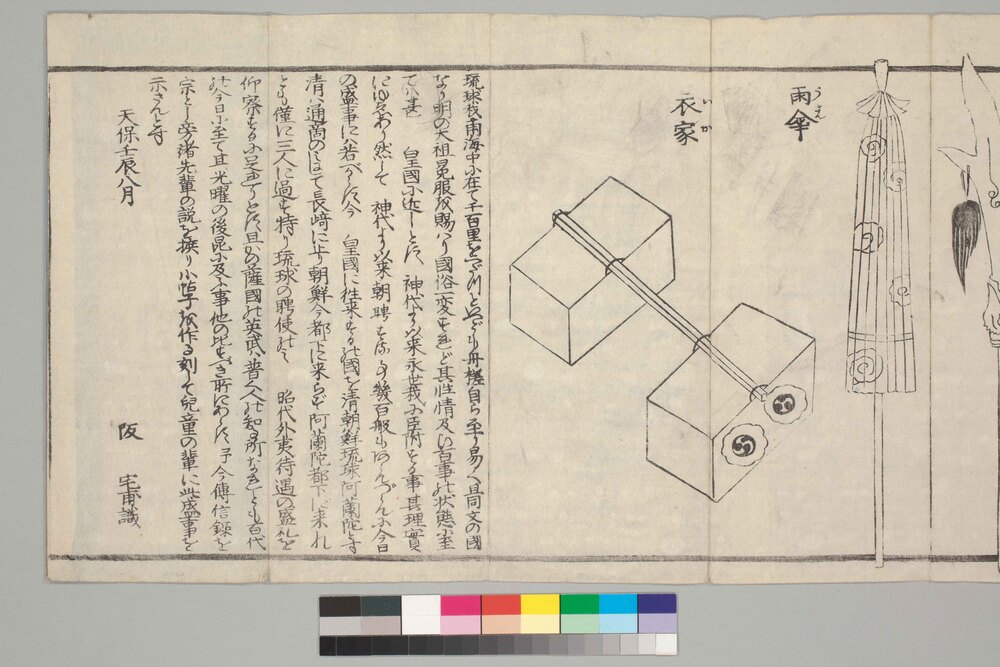 雨傘
うさん
衣家
いか
琉球我南海中に在て千百里をへだつといへども舟楫自ら至り易く且同文の國
なり明の太祖冕服を賜はり國俗一変すれど其性情及い百事の状態に至
ては甚 皇國に近しとす、神代より以来永世我に臣附する事甚理實
にゆゑあり然して 神代より以来朝聘する事幾百般
の盛事には若べからず今 皇國に往来するの國を清朝鮮琉球阿蘭陀とす
清は通商のみにて長崎に止り朝鮮今都下に来らず阿蘭陀都下に来れ
ども僅に三人に過ず特り琉球の聘使のみ 昭代外夷待遇の盛礼を
仰察するに足れりとす且かの薩國の英武、普く人の知る所なれども百代
の今日に至て其光曜の後昆に及ぶ事他の比すべき所にあらず予今傳信録を
宗とし旁諸先輩の説を撰り小帖子を作る刻して兒童の輩に此盛事を
示さんとす
天保壬辰八月
阪 宅甫識